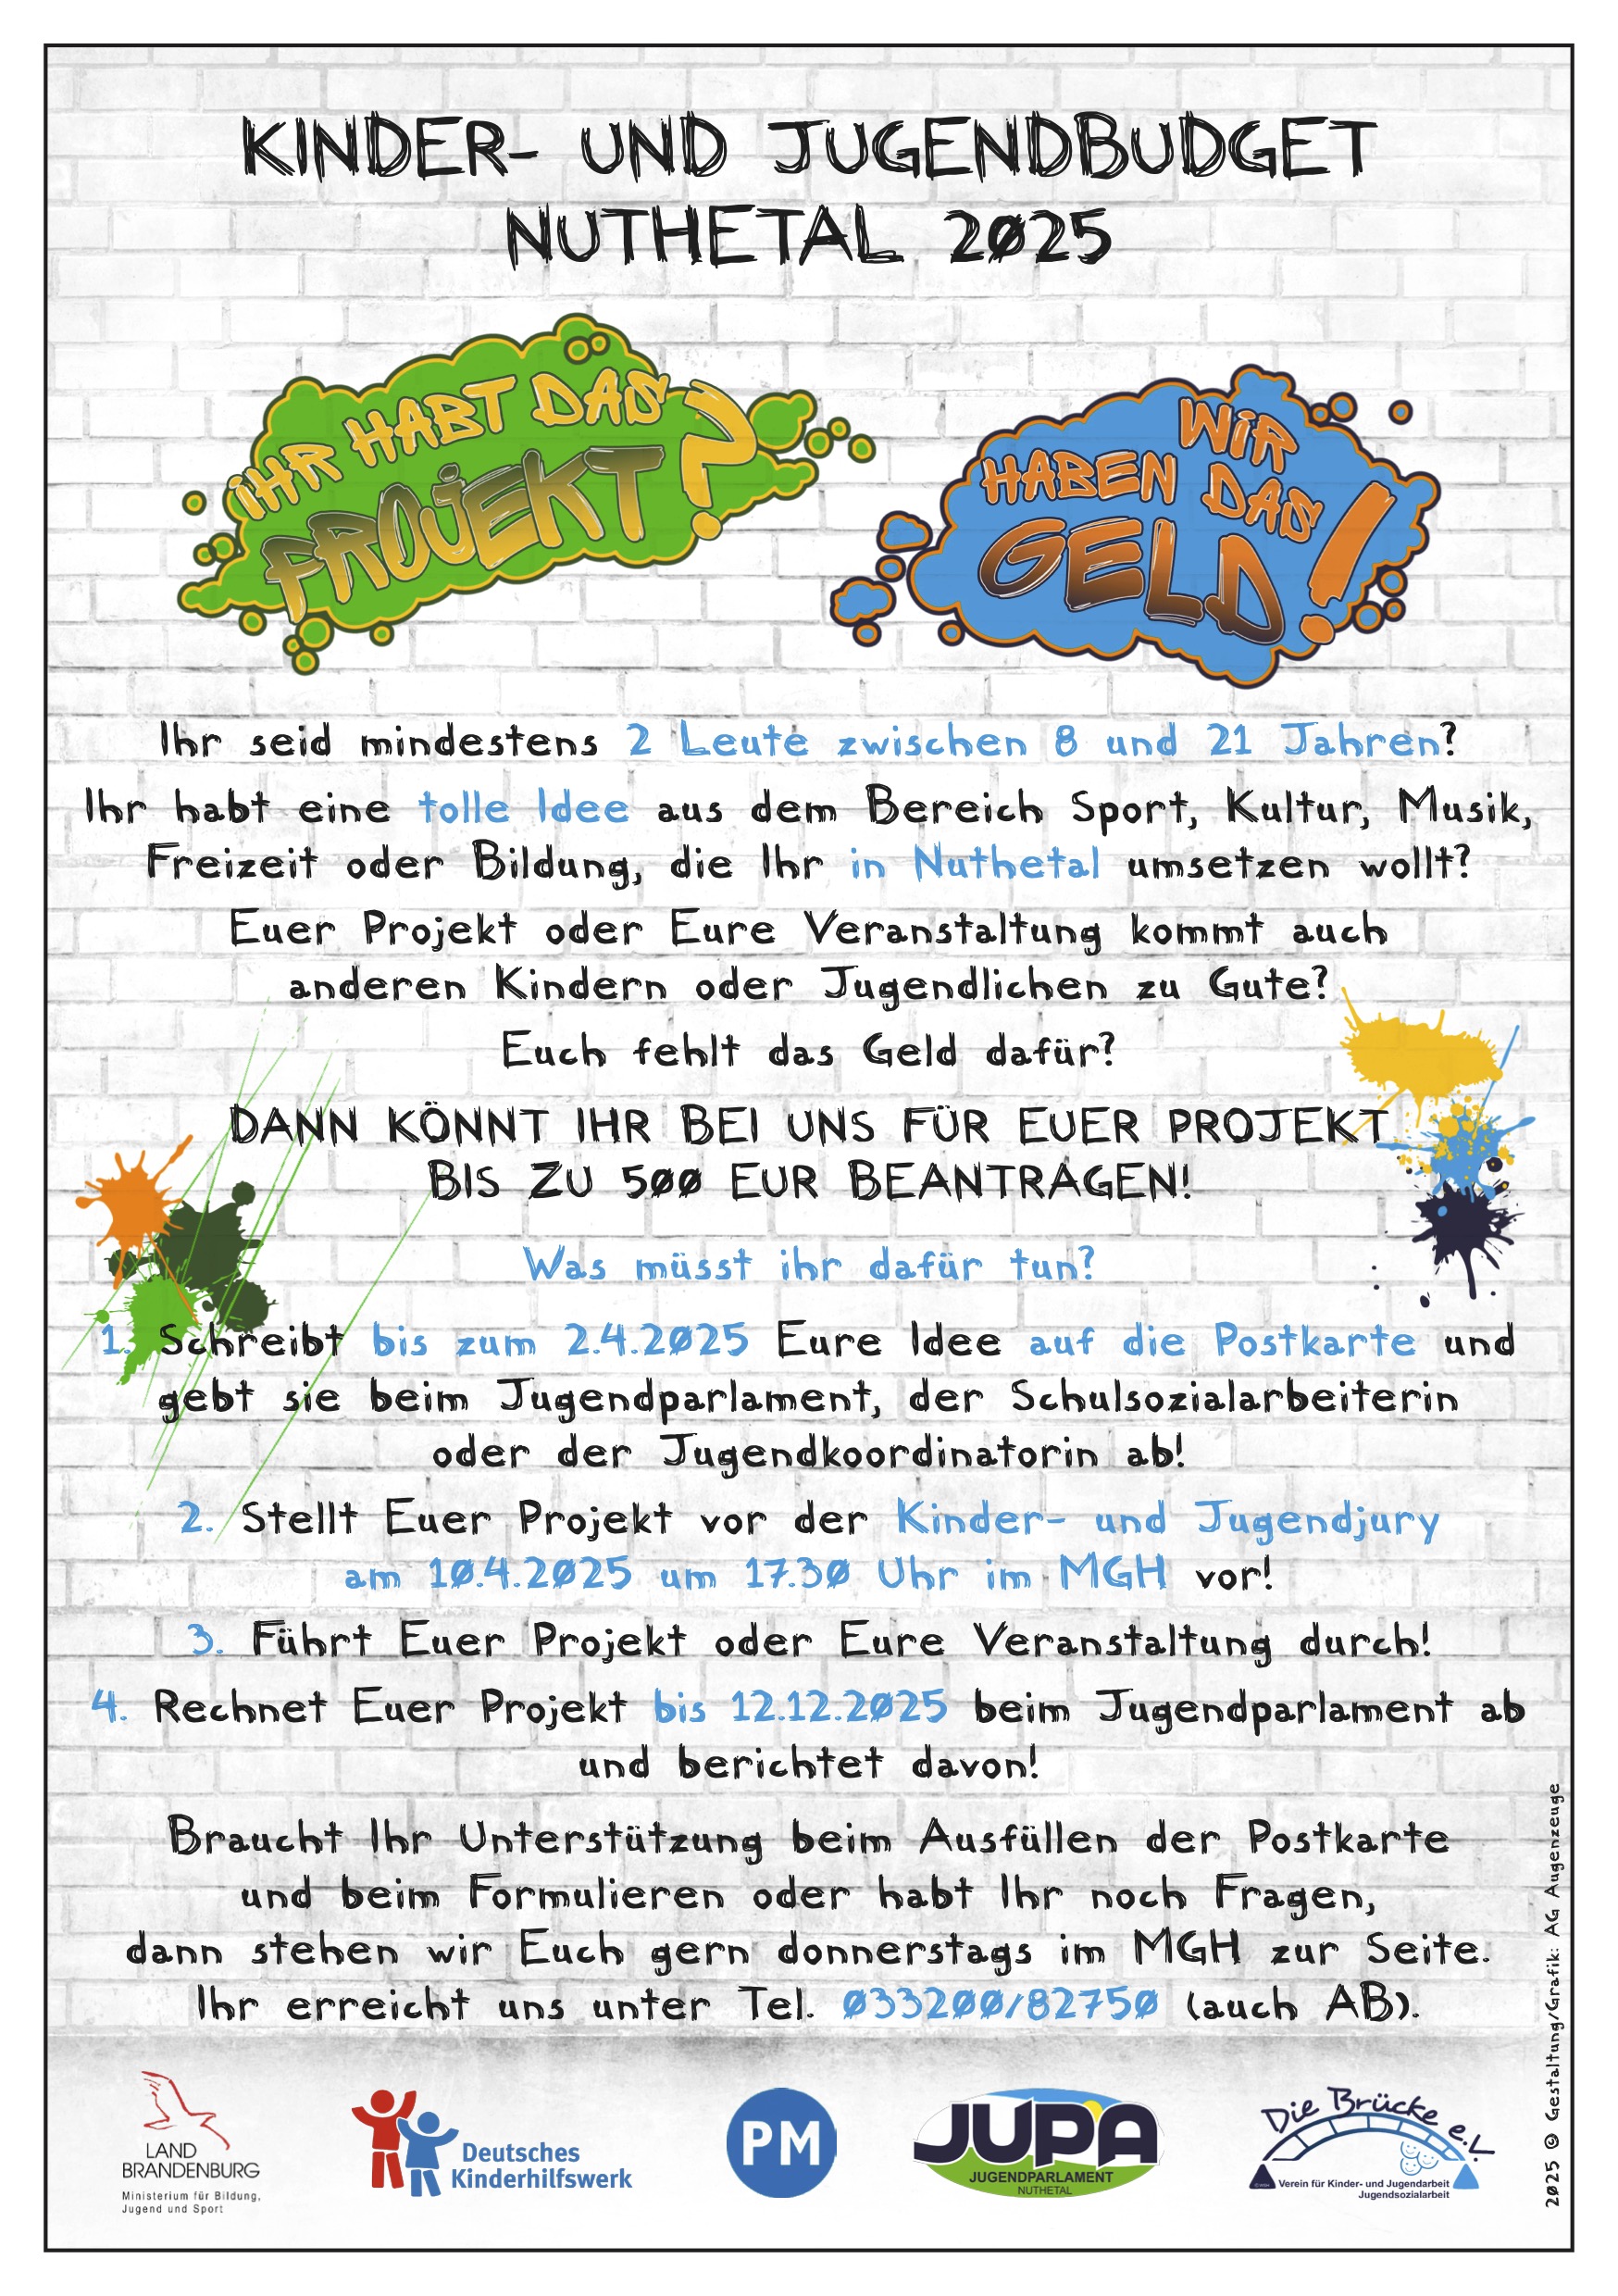 KINDER- UND JUGENDBUDGET
NUTHETAL 2025
IHR HABT DAS
PROJEKT?
WIR
HABEN DAS
GELD!
Ihr seid mindestens 2 Leute zwischen 8 und 21 Jahren?
Ihr habt eine tolle Idee aus dem Bereich Sport, Kultur, Musik,
Freizeit oder Bildung, die Ihr in Nuthetal umsetzen wollt?
Euer Projekt oder Eure Veranstaltung kommt auch
anderen Kindern oder Jugendlichen zu Gute?
Euch fehlt das Geld dafür?
DANN KÖNNT IHR BEI UNS FÜR EUER PROJEKT
BIS ZU 500 EUR BEANTRAGEN!
Was müsst ihr dafür tun?
1. Schreibt bis zum 2.4.2025 Eure Idee auf die Postkarte und
gebt sie beim Jugendparlament, der Schulsozialarbeiterin
oder der Jugendkoordinatorin ab!
2. Stellt Euer Projekt vor der Kinder- und Jugendjury
am 10.4.2025 um 17.30 Uhr im MGH vor!
3. Führt Euer Projekt oder Eure Veranstaltung durch!
4. Rechnet Euer Projekt bis 12.12.2025 beim Jugendparlament ab
und berichtet davon!
Braucht Ihr Unterstützung beim Ausfüllen der Postkarte
und beim Formulieren oder habt Ihr noch Fragen,
dann stehen wir Euch gern donnerstags im MGH zur Seite.
Ihr erreicht uns unter Tel. 033200/82750 (auch AB).
LAND
BRANDENBURG
Ministerium für Bildung,
Jugend und Sport
Deutsches
Kinderhilfswerk
PM
JUPA
JUGENDPARLAMENT
NUTHETAL
Die Brücke e.V.
Verein für Kinder- und Jugendarbeit
Jugendsozialarbeit
2025 © Gestaltung/Grafik: AG Augenzeuge